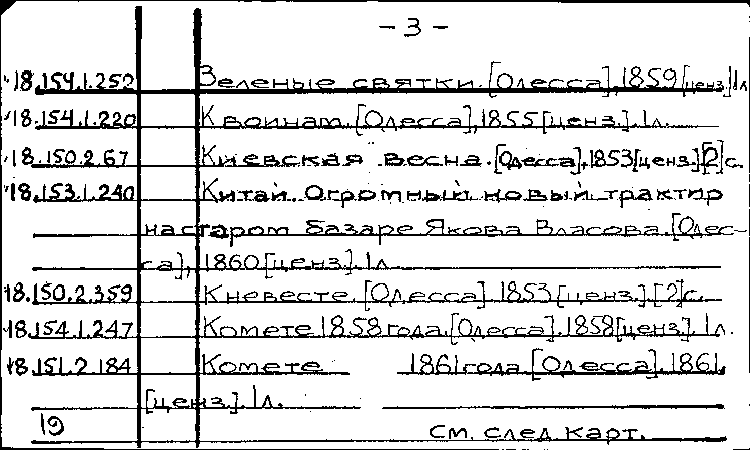 - 3 -
18.154.1.252 Зеленые святки. [Одесса], 1859 [ценз]. 1 л.
18.154.1.220 К воинам. [Одесса], 1855 [ценз]. 1 л.
18.150.2.67 Киевская весна. [Одесса], 1853 [ценз]. [2] с.
18.153.1.240 Китай. Огромный новый трактир
на старом базаре Якова Власова. [Одес-
са], 1860 [ценз]. 1 л.
18.150.2.359 К невесте. [Одесса]. 1853 [ценз]. [2] с.
18.154.1.247 Комете 1858 года. [Одесса]. 1858 [ценз]. 1 л.
18.151.2.184 Комете 1861 года. [Одесса]. 1861.
[ценз]. 1 л.
19 См. след. карт.